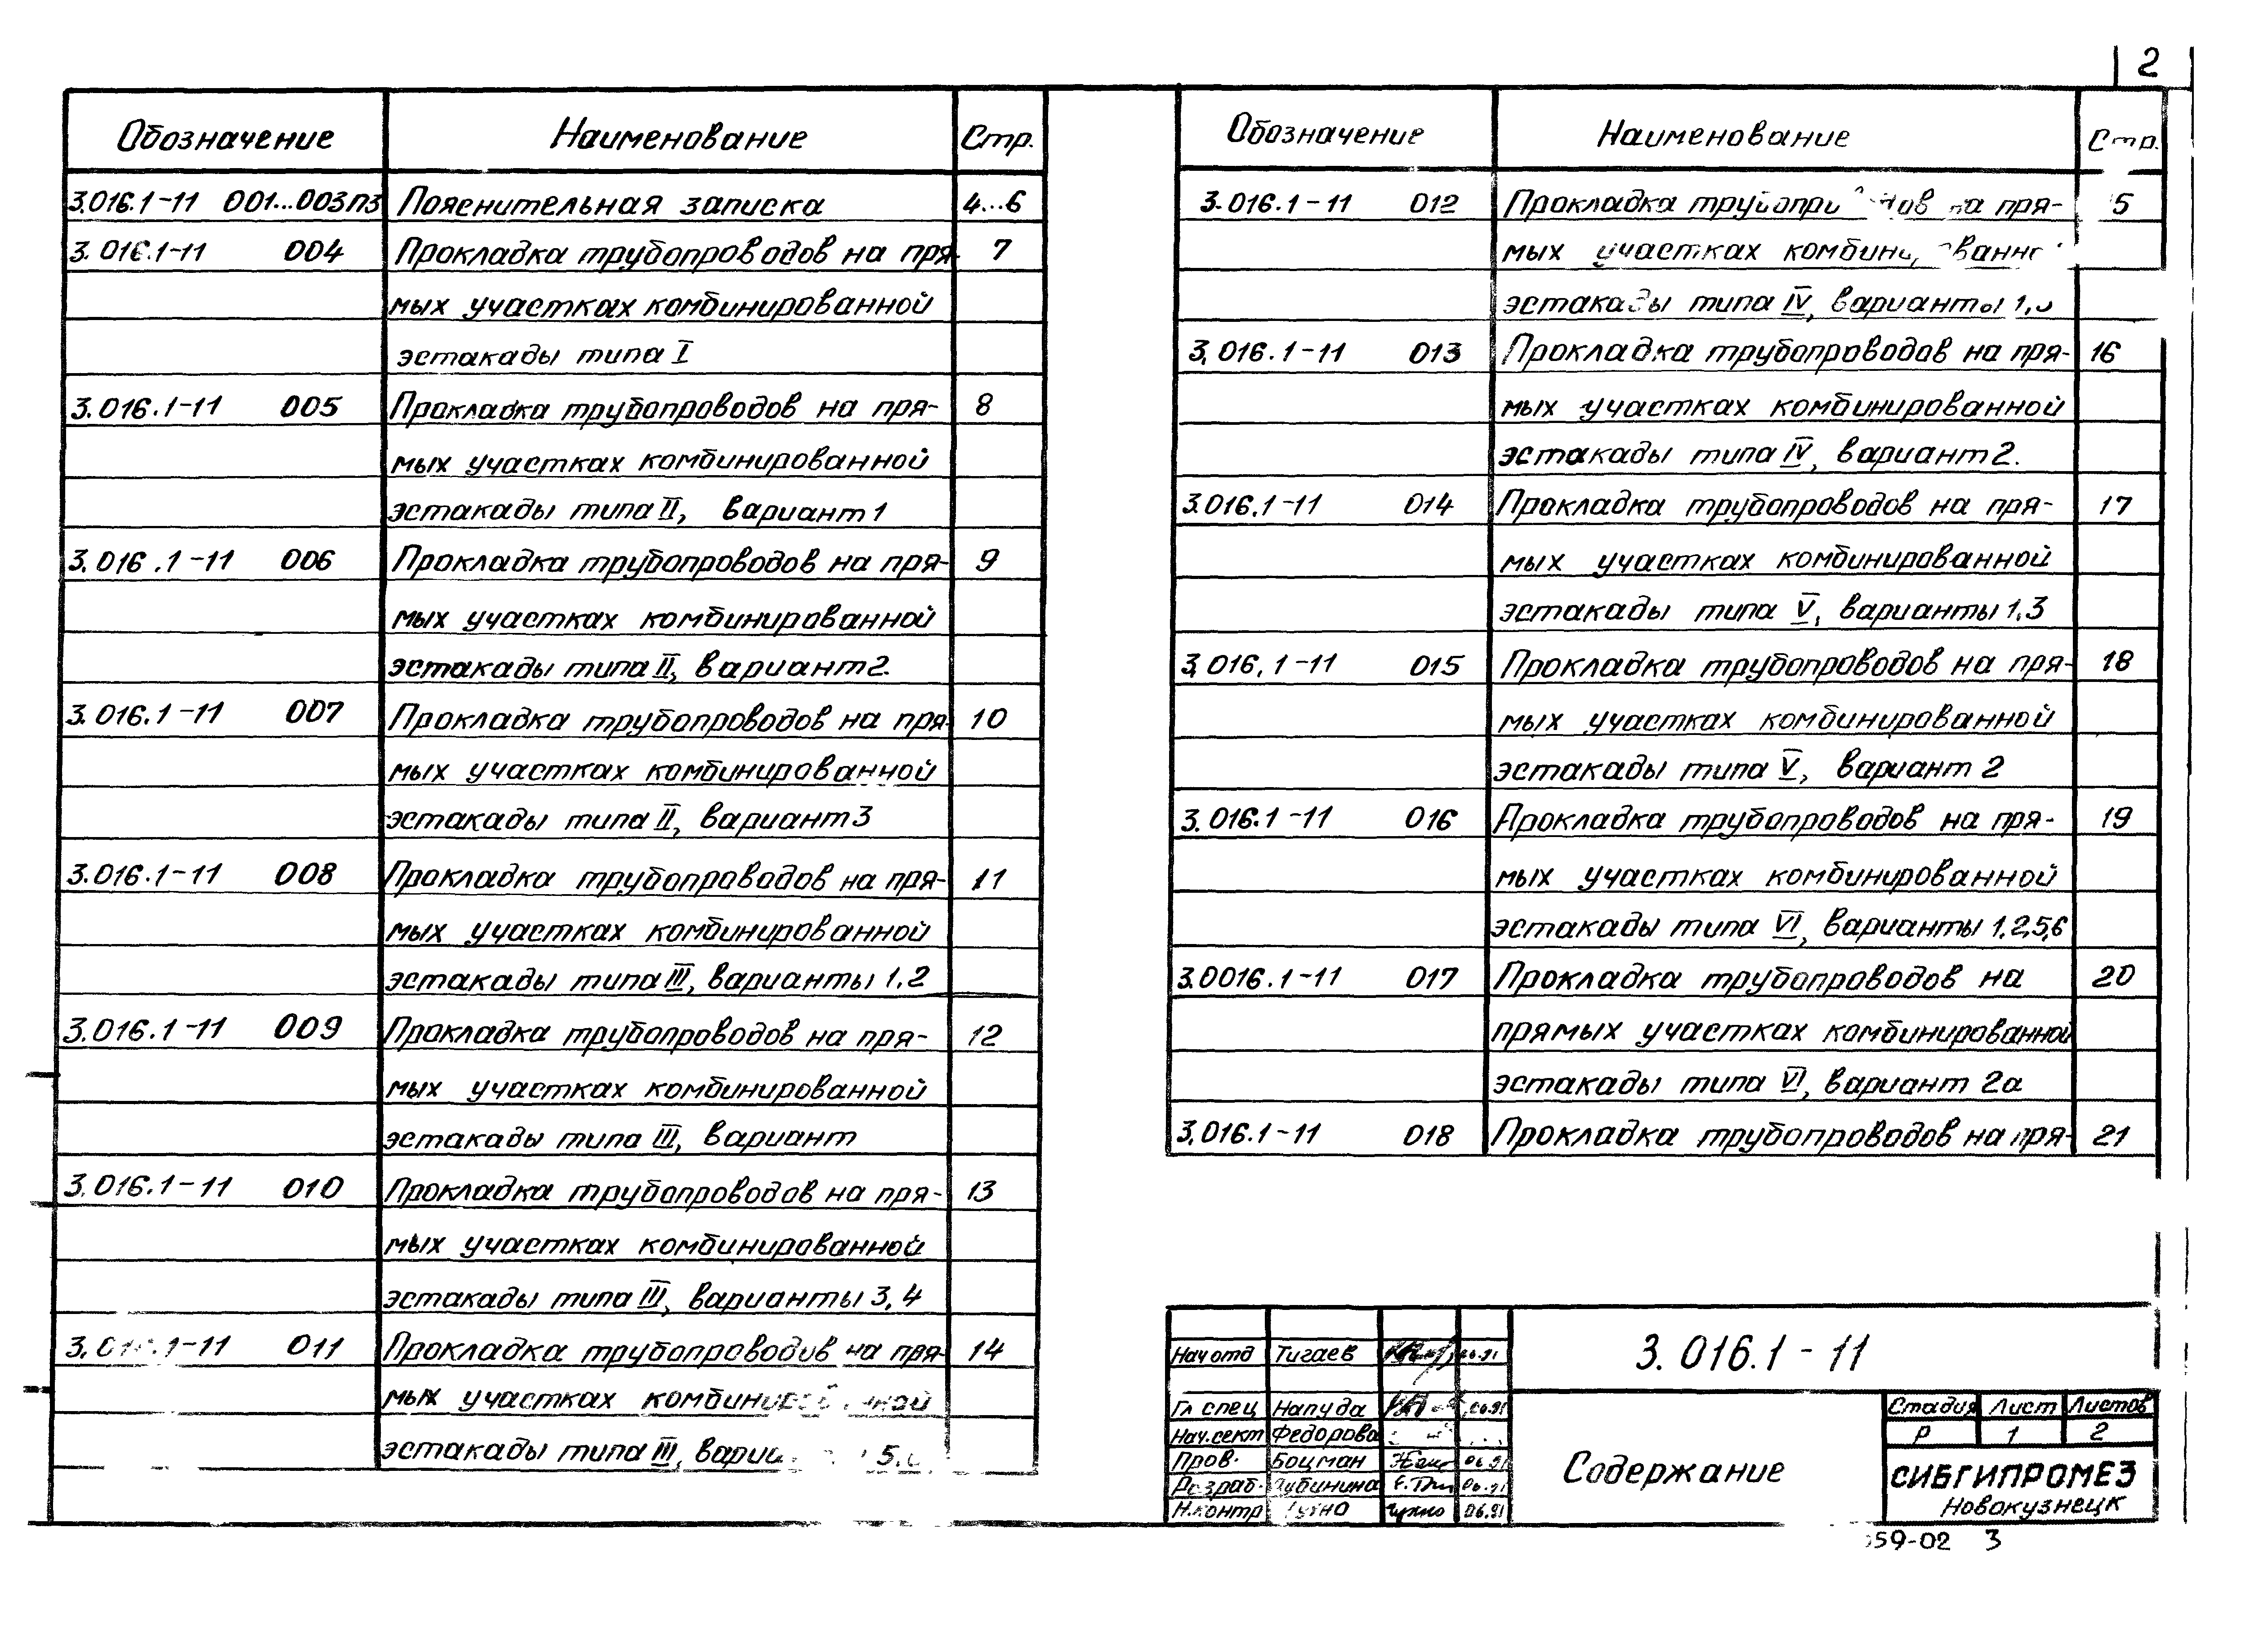 2
Обозначение Наименование Стр.
3.016.1-11 001...003ПЗ Пояснительная записка 4...6
3.016.1-11 004 Прокладка трубопроводов на пря- 7
мых участках комбинированной
эстакады типа I
3.016.1-11 005 Прокладка трубопроводов на пря- 8
мых участках комбинированной
эстакады типа II, вариант 1
3.016.1-11 006 Прокладка трубопроводов на пря- 9
мых участках комбинированной
эстакады типа II, вариант 2.
3.016.1-11 007 Прокладка трубопроводов на пря- 10
мых участках комбинированной
эстакады типа II, вариант 3
3.016.1-11 008 Прокладка трубопроводов на пря- 11
мых участках комбинированной
эстакады типа III, варианты 1.2
3.016.1-11 009 Прокладка трубопроводов на пря- 12
мых участках комбинированной
эстакады типа III, вариант
3.016.1-11 010 Прокладка трубопроводов на пря- 13
мых участках комбинированной
эстакады типа III, варианты 3,4
3.016.1-11 011 Прокладка трубопроводов на пря- 14
мых участках
эстакады типа III,
Обозначение Наименование Стр.
3.016.1-11 012 Прокладка на пря-
мых участках
эстакады типа IV, варианты
3.016.1-11 013 Прокладка трубопроводов на пря- 16
мых участках комбинированной
эстакады типа IV, вариант 2.
3.016.1-11 014 Прокладка трубопроводов на пря- 17
мых участках комбинированной
эстакады типа V, варианты 1.3
3.016.1-11 015 Прокладка трубопроводов на пря- 18
мых участках комбинированной
эстакады типа V, вариант 2
3.016.1-11 016 Прокладка трубопроводов на пря- 19
мых участках комбинированной
эстакады типа VI, варианты 1,2,5,6
3.0016.1-11 017 Прокладка трубопроводов на 20
прямых участках комбинированной
эстакады типа VI, вариант 2а
3.016.1-11 018 Прокладка трубопроводов на пря- 21
3.016.1-11
Нач отд Тигаев
Гл спец Напуда
Нач.сект Федорова
Пров. Боцман 06.91
Разраб.
Н.контр 06.91
Содержание
Стадия Лист Листов
Р 1 2
СИБГИПРОМЕЗ
Новокузнецк
59-02 3